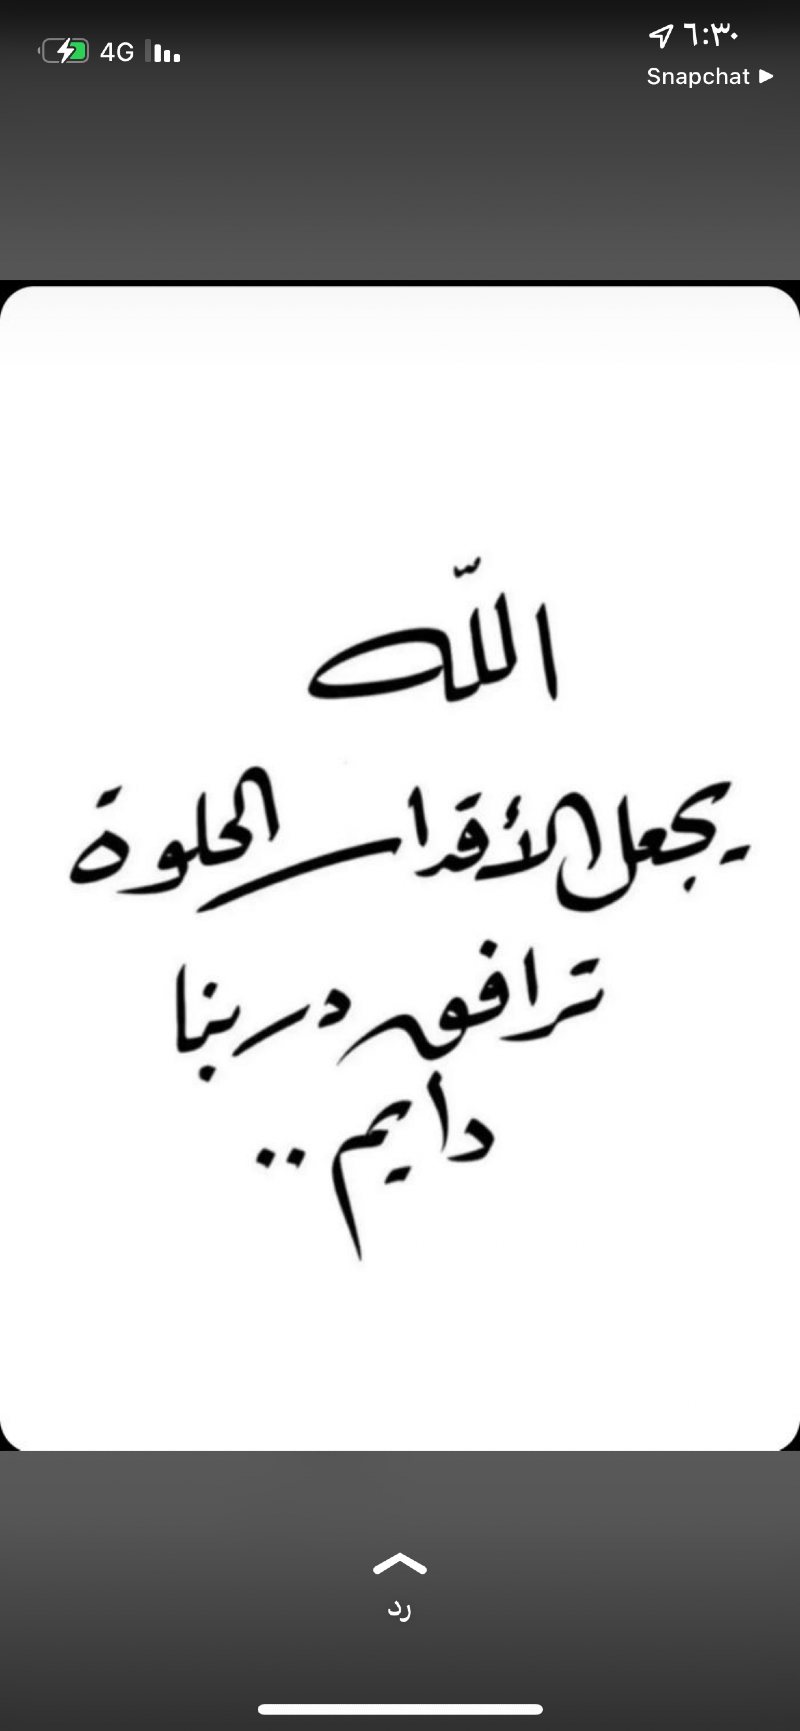 4G
٦:٣٠
Snapchat
اللّه
يجعل الأقدار الحلوة
ترافق دربنا
دايم ..
رد